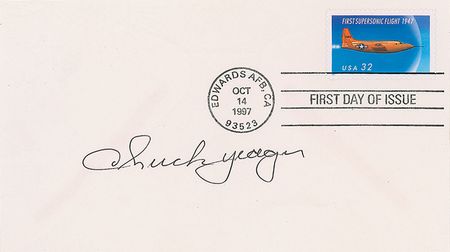 FIRST SUPERSONIC FLIGHT 1947
USA 32
EDWARDS AFB, CA
OCT
14
1997
93523
FIRST DAY OF ISSUE
Chuck Yeager